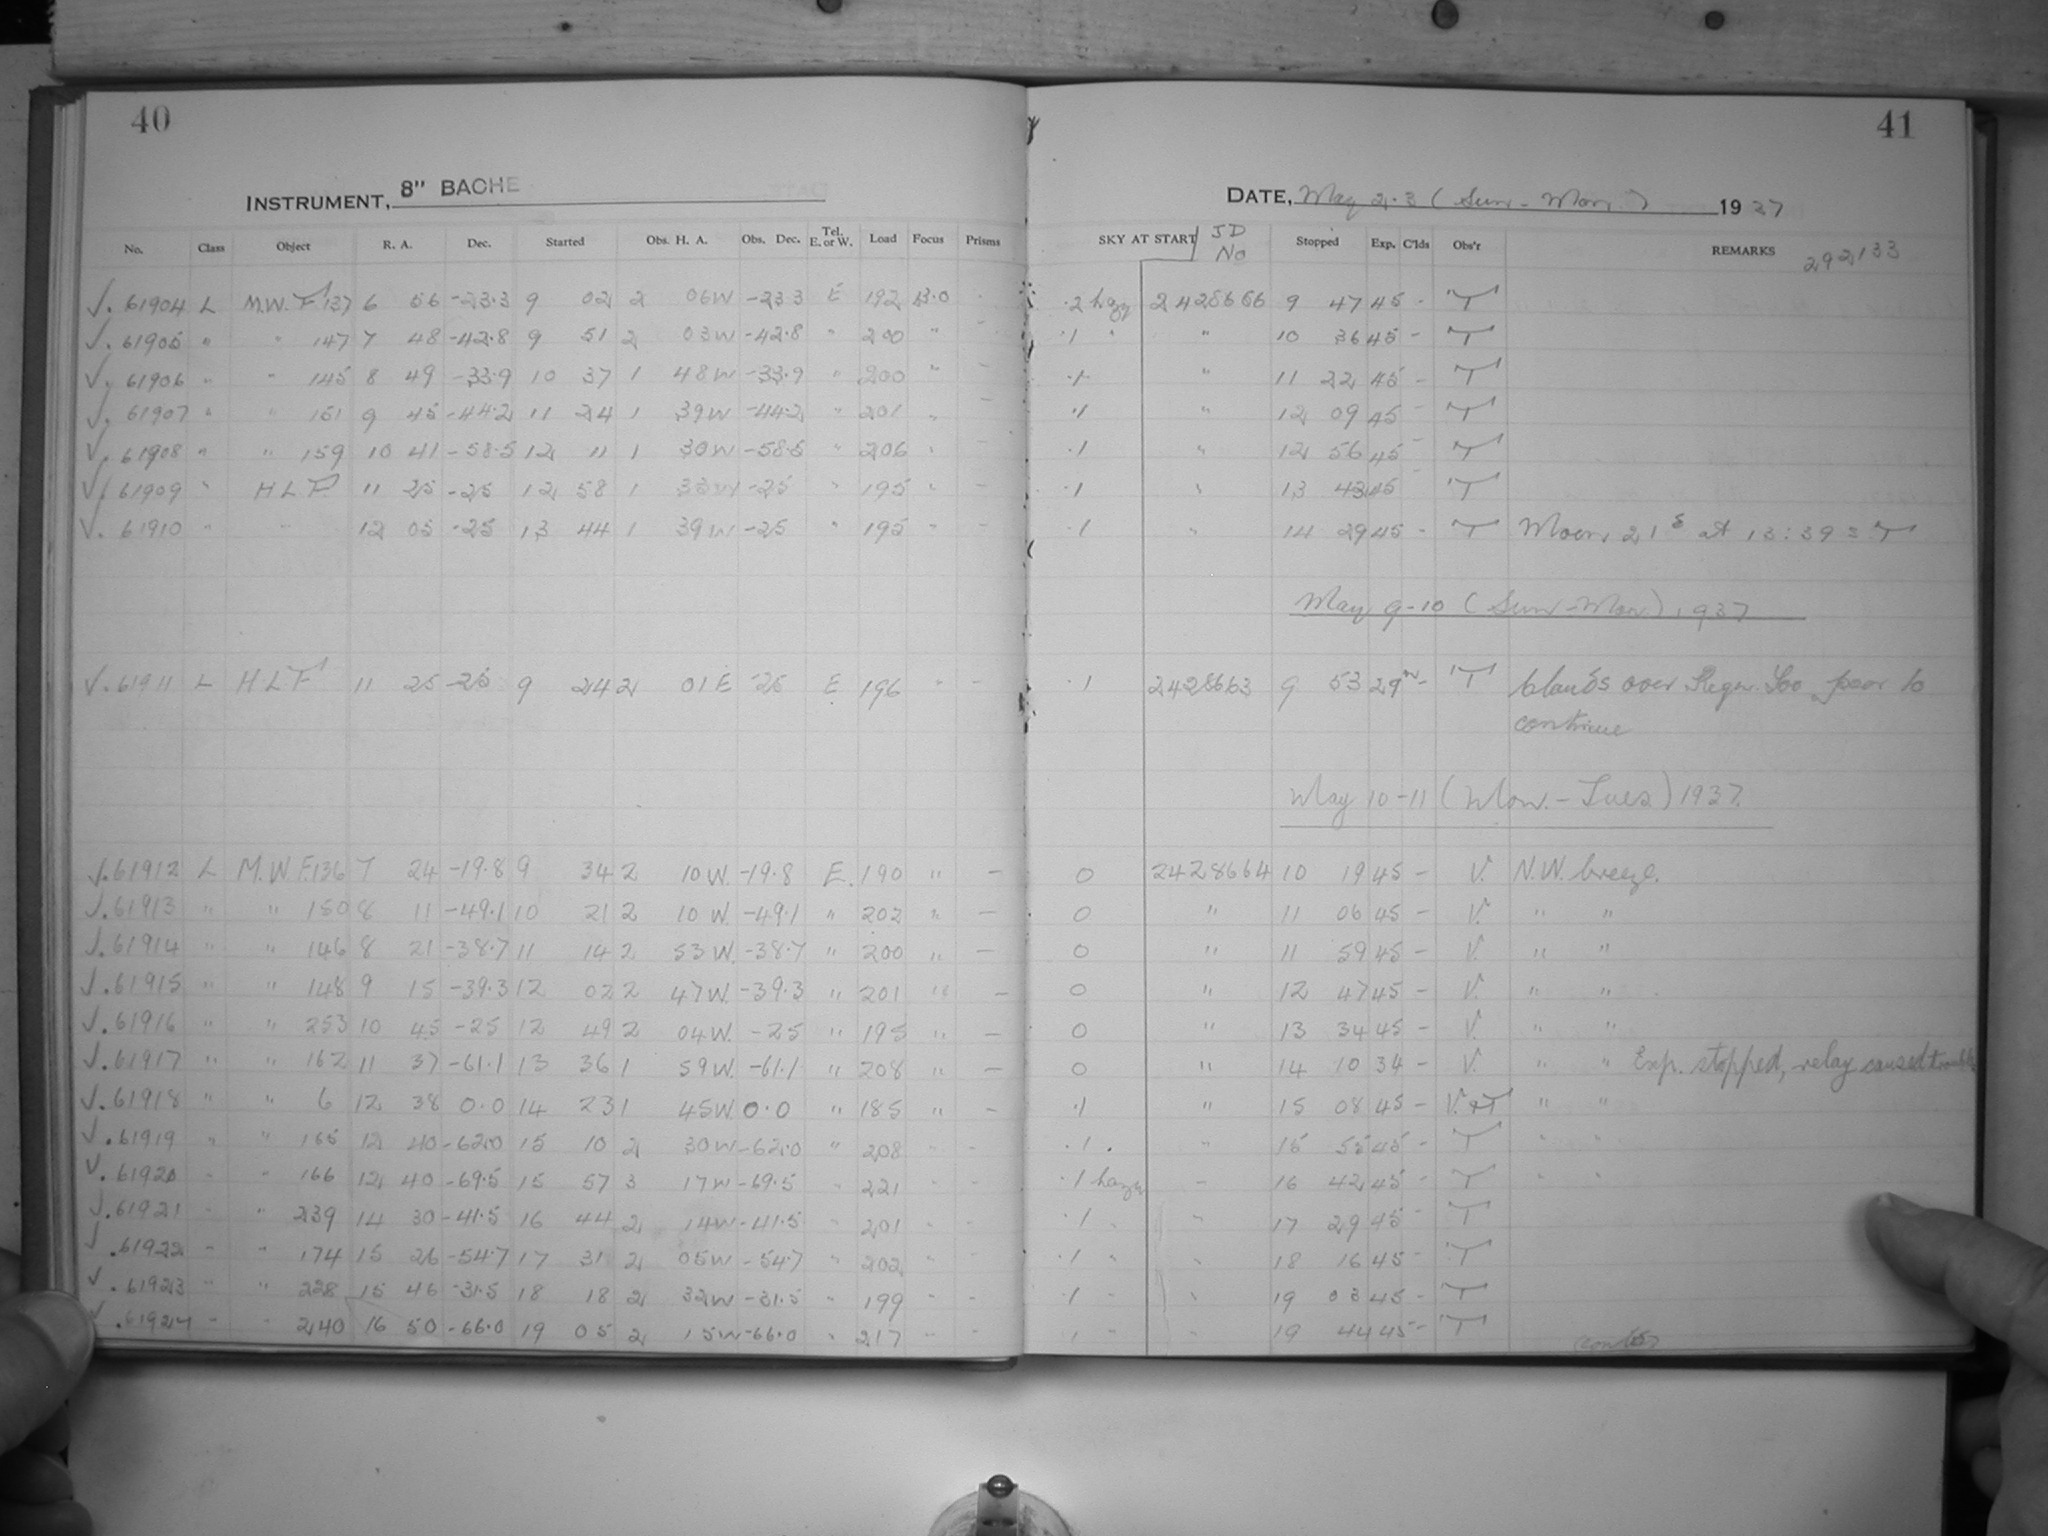 40
41
INSTRUMENT, 8" BACHE
DATE, May 2.3 (Sun - Mon) 1937
No. Class Object R. A. Dec. Started Obs. H. A. Obs. Dec. Tel. E. or W. Load Focus Prisms SKY AT START JD No Stopped Exp. C'lds Obs'r REMARKS 292133
√. 61904 L M.W. F 137 6 56 -23.3 9 02 2 06W -23.3 E 192 13.0 - .2 hazy 2428656 9 47 45 - T
√. 61905 " " 147 7 48 -42.8 9 51 2 03W -42.8 " 200 " - .1 " " 10 36 45 - T
√. 61906 " " 145 8 49 -33.9 10 37 1 48W -33.9 " 200 " - .1 " 11 22 45 - T
√. 61907 " " 151 9 45 -44.2 11 24 1 39W -44.2 " 201 " - .1 " 12 09 45 - T
√. 61908 " " 159 10 41 -58.5 12 11 1 30W -58.5 " 206 " - .1 " 12 56 45 - T
√. 61909 " H L F 11 25 -25 12 58 1 33W -25 " 195 " - .1 " 13 43 45 T
√. 61910 " " 12 05 -25 13 44 1 39W -25 " 195 " - .1 " 14 29 45 - T Moon 21 s at 13:39 = T
May 9-10 (Sun-Mon), 1937
√. 61911 L H L F 11 25 -25 9 24 2 01 E -25 E 196 " - .1 2428663 9 53 29m - T Clouds over Region. Too poor to
continue
May 10-11 (Mon. - Tues) 1937.
√. 61912 L M.W F.136 7 24 -19.8 9 34 2 10W. -19.8 E. 190 " - 0 2428664 10 19 45 - V. N.W. breeze.
√. 61913 " " 150 8 11 -49.1 10 21 2 10 W. -49.1 " 202 " - 0 " 11 06 45 - V. " "
√. 61914 " " 146 8 21 -38.7 11 14 2 53 W. -38.7 " 200 " - 0 " 11 59 45 - V. " "
√. 61915 " " 148 9 15 -39.3 12 02 2 47W. -39.3 " 201 " - 0 " 12 47 45 - V. " "
√. 61916 " " 253 10 45 -25 12 49 2 04W. -25 " 195 " - 0 " 13 34 45 - V. " "
√. 61917 " " 162 11 37 -61.1 13 36 1 59W. -61.1 " 208 " - 0 " 14 10 34 - V. " " Exp. stopped, relay caused trouble
√. 61918 " " 6 12 38 0.0 14 23 1 45W 0.0 " 185 " - .1 " 15 08 45 - V. & T " "
√. 61919 " " 165 12 40 -62.0 15 10 2 30W -62.0 " 208 - - .1 . " 15 55 45 - T " "
√. 61920 - " 166 12 40 -69.5 15 57 3 17W -69.5 " 221 - - .1 hazy " 16 42 45 - T " "
√. 61921 - " 239 14 30 -41.5 16 44 2 14W -41.5 " 201 - - .1 " " 17 29 45 - T
√. 61922 - " 174 15 26 -54.7 17 31 2 05W -54.7 " 202 " - .1 " " 18 16 45 - T
√. 61923 - " 228 15 46 -31.5 18 18 2 32W -31.5 " 199 - - .1 " " 19 03 45 - T
√. 61924 - " 240 16 50 -66.0 19 05 2 15W -66.0 " 217 - - .1 " " 19 44 45 - T